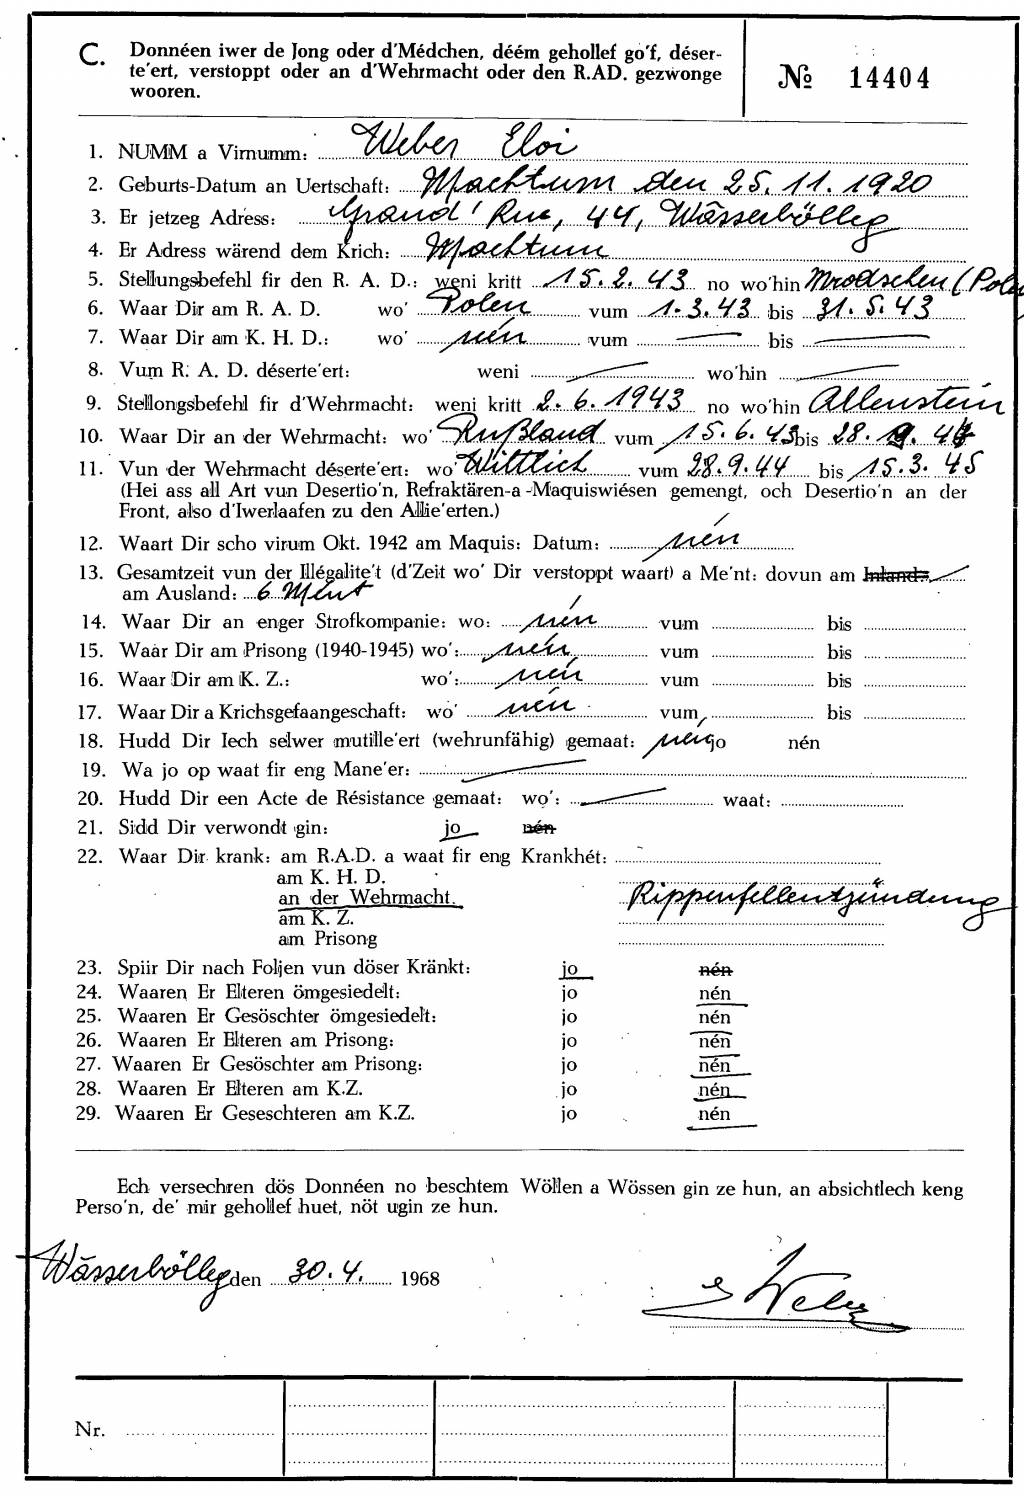 C. Donnéen iwer de Jong oder d'Médchen, déém gehollef go'f, déser-
te'ert, verstoppt oder an d'Wehrmacht oder den R.AD. gezwonge
wooren.
№ 14404
1. NUMM a Virnumm: Weber Eloi
2. Geburts-Datum an Uertschaft: Machtum den 25.11.1920
3. Er jetzeg Adress: Grand' Rue, 44, Wässerbölleg
4. Er Adress wärend dem Krich: Machtum
5. Stellungsbefehl fir den R. A. D.: weni kritt 15.2.43 no wo'hin Mrodschen (Polen
6. Waar Dir am R. A. D. wo' Polen vum 1.3.43 bis 31.5.43
7. Waar Dir am K. H. D.: wo' nén vum — bis —
8. Vum R. A. D. déserte'ert: weni — wo'hin —
9. Stellongsbefehl fir d'Wehrmacht: weni kritt 2.6.1943 no wo'hin Allenstein
10. Waar Dir an der Wehrmacht: wo' Rußland vum 15.6.43 bis 28.9.44
11. Vun der Wehrmacht déserte'ert: wo' Wittlich vum 28.9.44 bis 15.3.45
(Hei ass all Art vun Desertio'n, Refraktären-a-Maquiswiésen gemengt, och Desertio'n an der
Front, also d'Iwerlaafen zu den Allie'erten.)
12. Waart Dir scho virum Okt. 1942 am Maquis: Datum: nén
13. Gesamtzeit vun der Illégalite't (d'Zeit wo' Dir verstoppt waart) a Me'nt: dovun am Inland: —
am Ausland: 6 Ment
14. Waar Dir an enger Strofkompanie: wo: nén vum bis
15. Waar Dir am Prisong (1940-1945) wo': nén vum bis
16. Waar Dir am K. Z.: wo': nén vum bis
17. Waar Dir a Krichsgefaangeschaft: wo' nén vum bis
18. Hudd Dir Iech selwer mutille'ert (wehrunfähig) gemaat: nén jo nén
19. Wa jo op waat fir eng Mane'er: —
20. Hudd Dir een Acte de Résistance gemaat: wo': — waat:
21. Sidd Dir verwondt gin: jo nén
22. Waar Dir krank: am R.A.D. a waat fir eng Krankhét:
am K. H. D.
an der Wehrmacht. Rippenfellentzündung
am K. Z.
am Prisong
23. Spiir Dir nach Foljen vun döser Kränkt: jo nén
24. Waaren Er Elteren ömgesiedelt: jo nén
25. Waaren Er Gesöschter ömgesiedelt: jo nén
26. Waaren Er Elteren am Prisong: jo nén
27. Waaren Er Gesöschter am Prisong: jo nén
28. Waaren Er Elteren am K.Z. jo nén
29. Waaren Er Geseschteren am K.Z. jo nén
Ech versechren dös Donnéen no beschtem Wöllen a Wössen gin ze hun, an absichtlech keng
Perso'n, de' mir gehollef huet, nöt ugin ze hun.
Wässerbölleg den 30.4. 1968
E Weber
Nr.